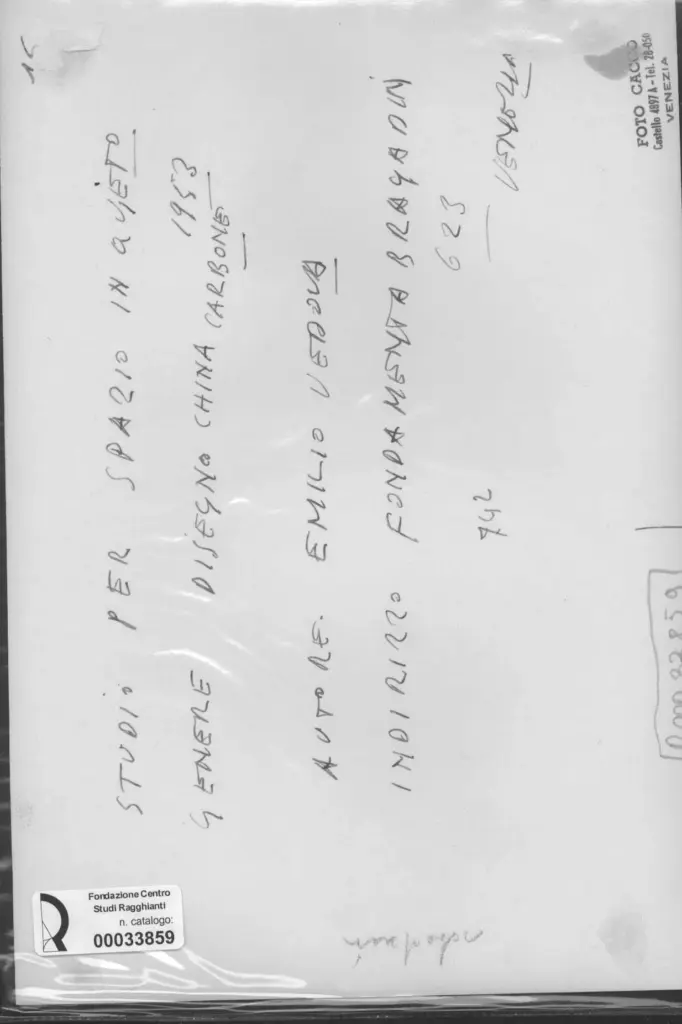 15
STUDIO PER SPAZIO INQUIETO
1953
GENERE DISEGNO CHINA CARBONE
AUTORE. EMILIO VEDOVA
INDIRIZZO FONDAMENTA BRAGADIN
623
VENEZIA
742
FOTO CACCO
Castello 4897 A - Tel. 28-050
VENEZIA
Fondazione Centro
Studi Ragghianti
n. catalogo:
00033859